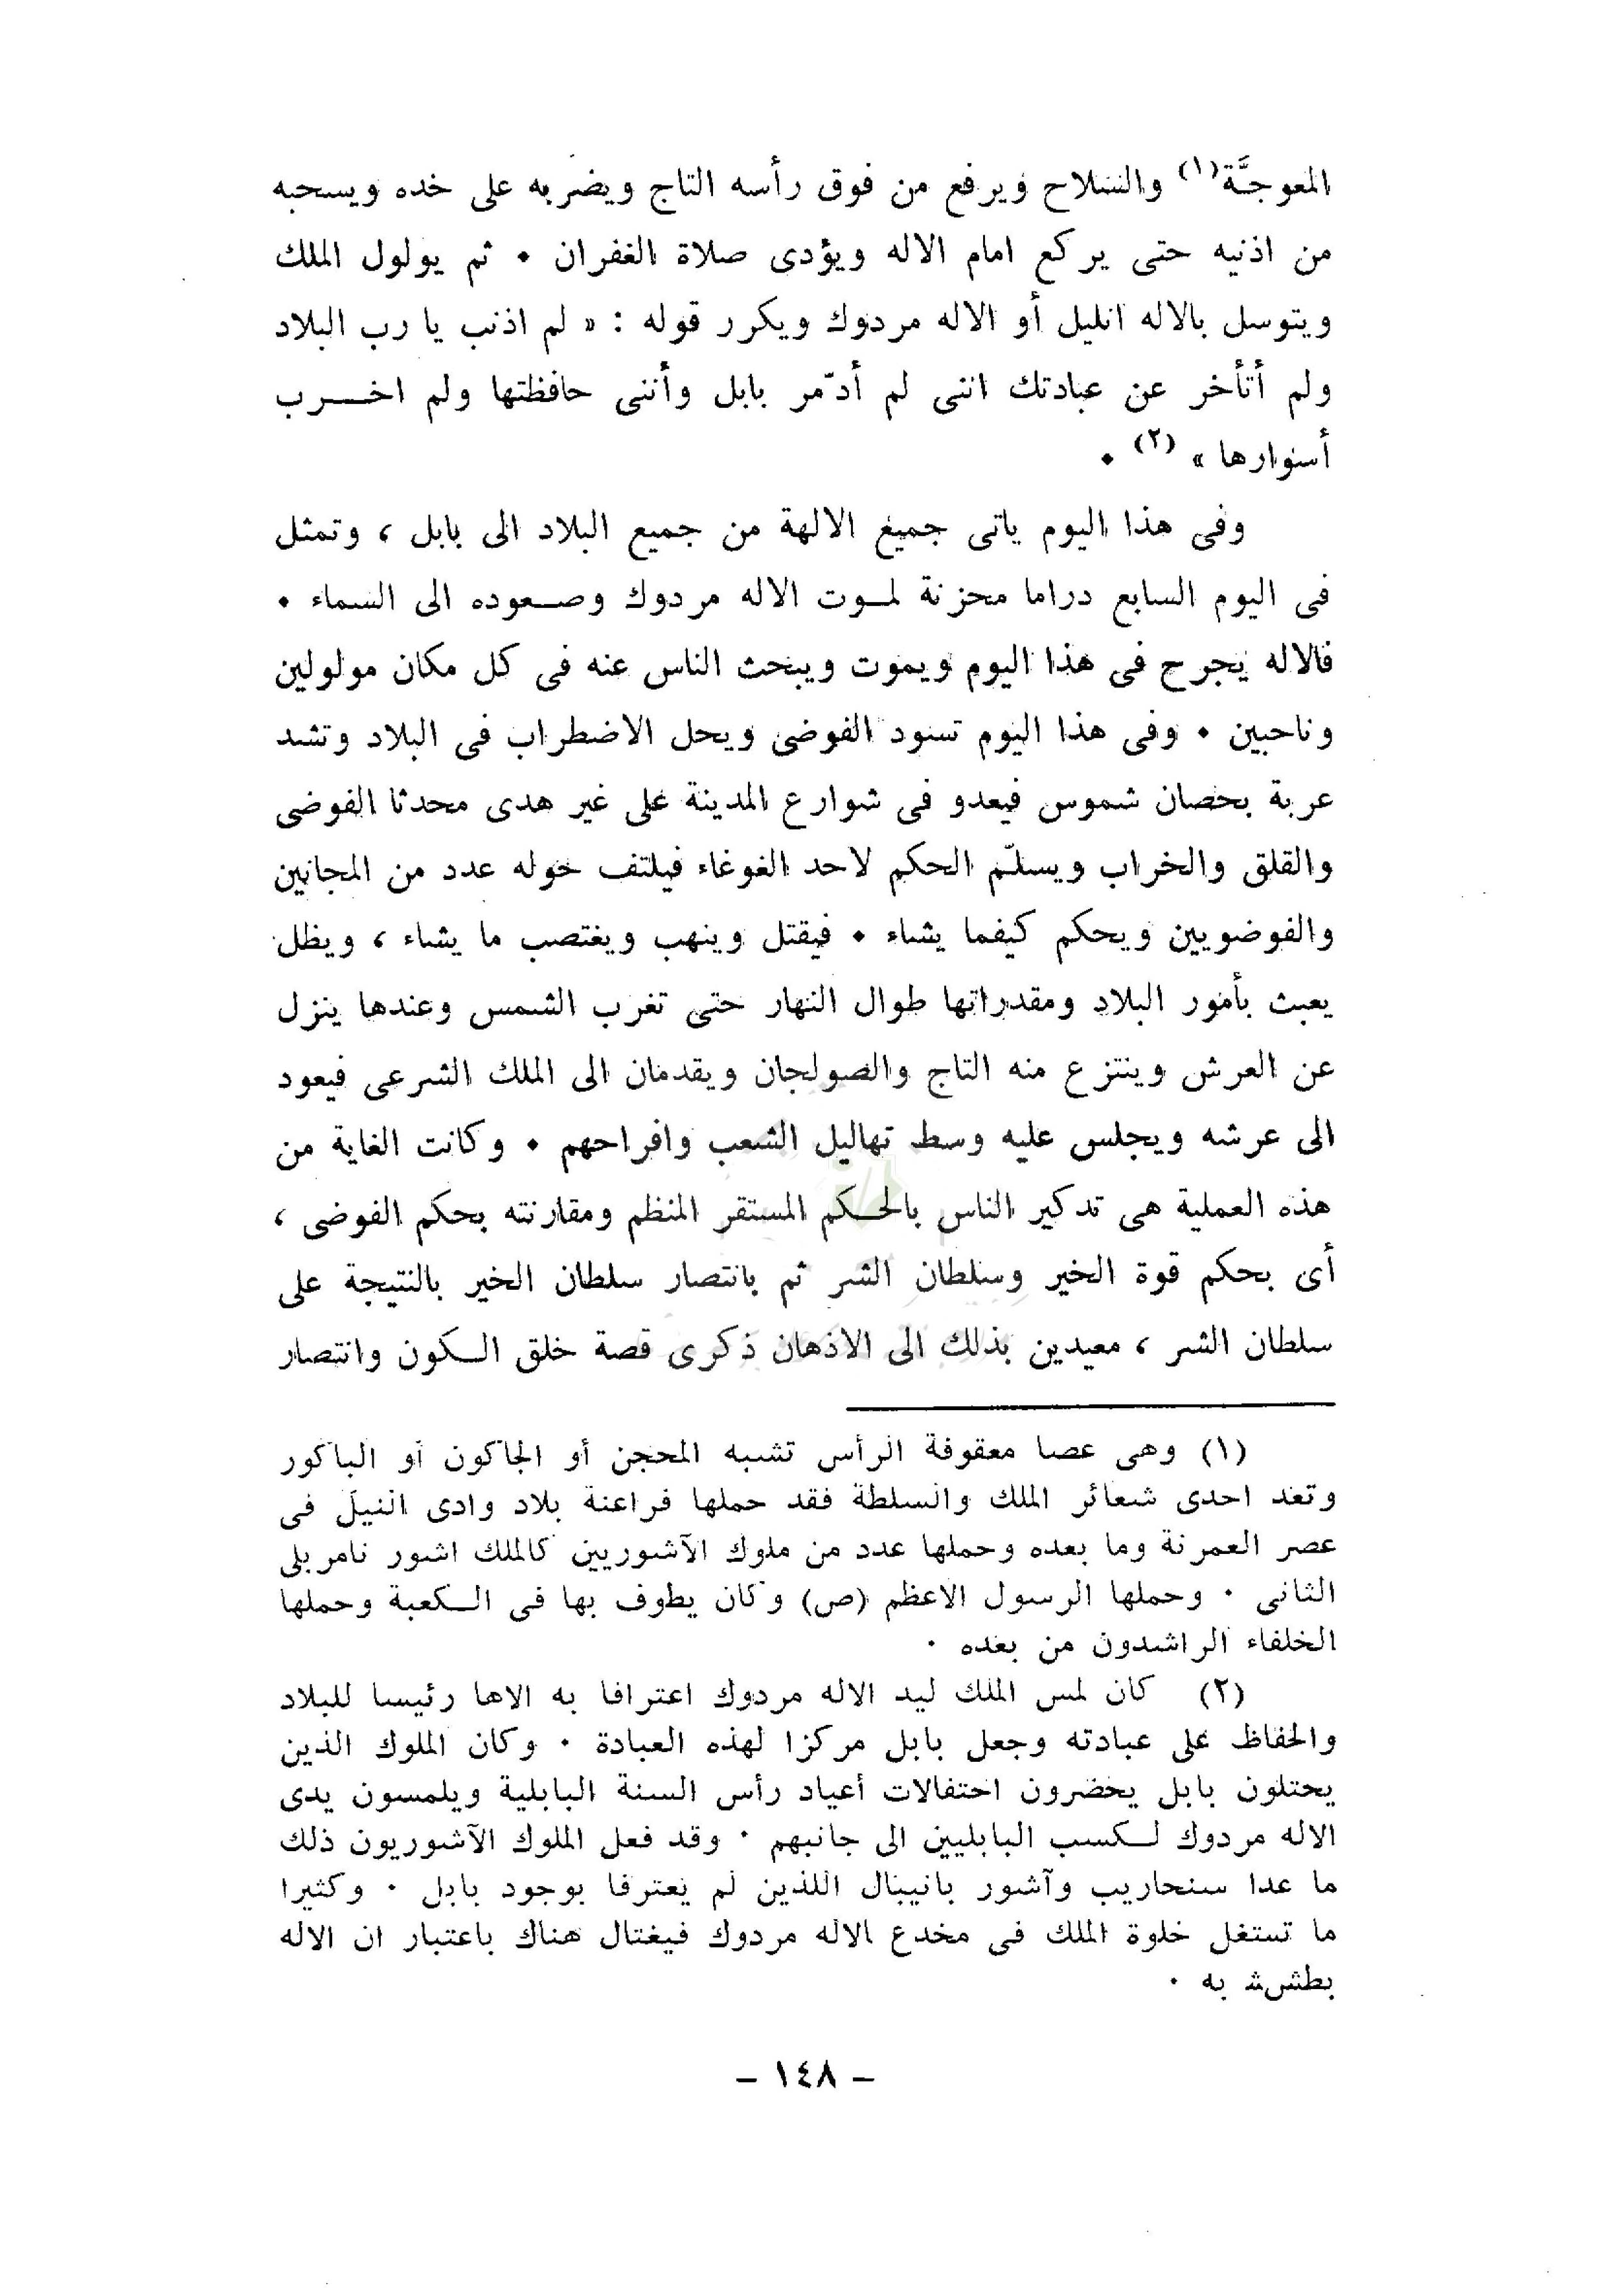 المعوجَّة(١) والسلاح ويرفع من فوق رأسه التاج ويضربه على خده ويسحبه
من اذنيه حتى يركع امام الاله ويؤدى صلاة الغفران ٠ ثم يولول الملك
ويتوسل بالاله انليل أو الاله مردوك ويكرر قوله : « لم اذنب يا رب البلاد
ولم أتأخر عن عبادتك اننى لم أدمّر بابل وأننى حافظتها ولم اخــرب
أسوارها » (٢) ٠
وفى هذا اليوم ياتى جميع الالهة من جميع البلاد الى بابل ، وتمثل
فى اليوم السابع دراما محزنة لمــوت الاله مردوك وصــعوده الى السماء ٠
فالاله يجرح فى هذا اليوم ويموت ويبحث الناس عنه فى كل مكان مولولين
وناحبين ٠ وفى هذا اليوم تسود الفوضى ويحل الاضطراب فى البلاد وتشد
عربة بحصان شموس فيعدو فى شوارع المدينة على غير هدى محدثا الفوضى
والقلق والخراب ويسلّم الحكم لاحد الغوغاء فيلتف حوله عدد من المجانين
والفوضويين ويحكم كيفما يشاء ٠ فيقتل وينهب ويغتصب ما يشاء ، ويظل
يعبث بأمور البلاد ومقدراتها طوال النهار حتى تغرب الشمس وعندها ينزل
عن العرش وينتزع منه التاج والصولجان ويقدمان الى الملك الشرعى فيعود
الى عرشه ويجلس عليه وسط تهاليل الشعب وافراحهم ٠ وكانت الغاية من
هذه العملية هى تدكير الناس بالحــكم المستقر المنظم ومقارنته بحكم الفوضى ،
أى بحكم قوة الخير وسلطان الشر ثم بانتصار سلطان الخير بالنتيجة على
سلطان الشر ، معيدين بذلك الى الاذهان ذكرى قصة خلق الــكون وانتصار
(١) وهى عصا معقوفة الرأس تشبه المحجن أو الجاكون أو الباكور
وتعد احدى شعائر الملك والسلطة فقد حملها فراعنة بلاد وادى النيل فى
عصر العمرنة وما بعده وحملها عدد من ملوك الآشوريين كالملك اشور نامربلى
الثانى ٠ وحملها الرسول الاعظم (ص) وكان يطوف بها فى الــكعبة وحملها
الخلفاء الراشدون من بعده ٠
(٢) كان لمس الملك ليد الاله مردوك اعترافا به الاها رئيسا للبلاد
والحفاظ على عبادته وجعل بابل مركزا لهذه العبادة ٠ وكان الملوك الذين
يحتلون بابل يحضرون احتفالات أعياد رأس السنة البابلية ويلمسون يدى
الاله مردوك لــكسب البابليين الى جانبهم ٠ وقد فعل الملوك الآشوريون ذلك
ما عدا سنحاريب وآشور بانيبال اللذين لم يعترفا بوجود بابل ٠ وكثيرا
ما تستغل خلوة الملك فى مخدع الاله مردوك فيغتال هناك باعتبار ان الاله
به ٠
– ١٤٨ –